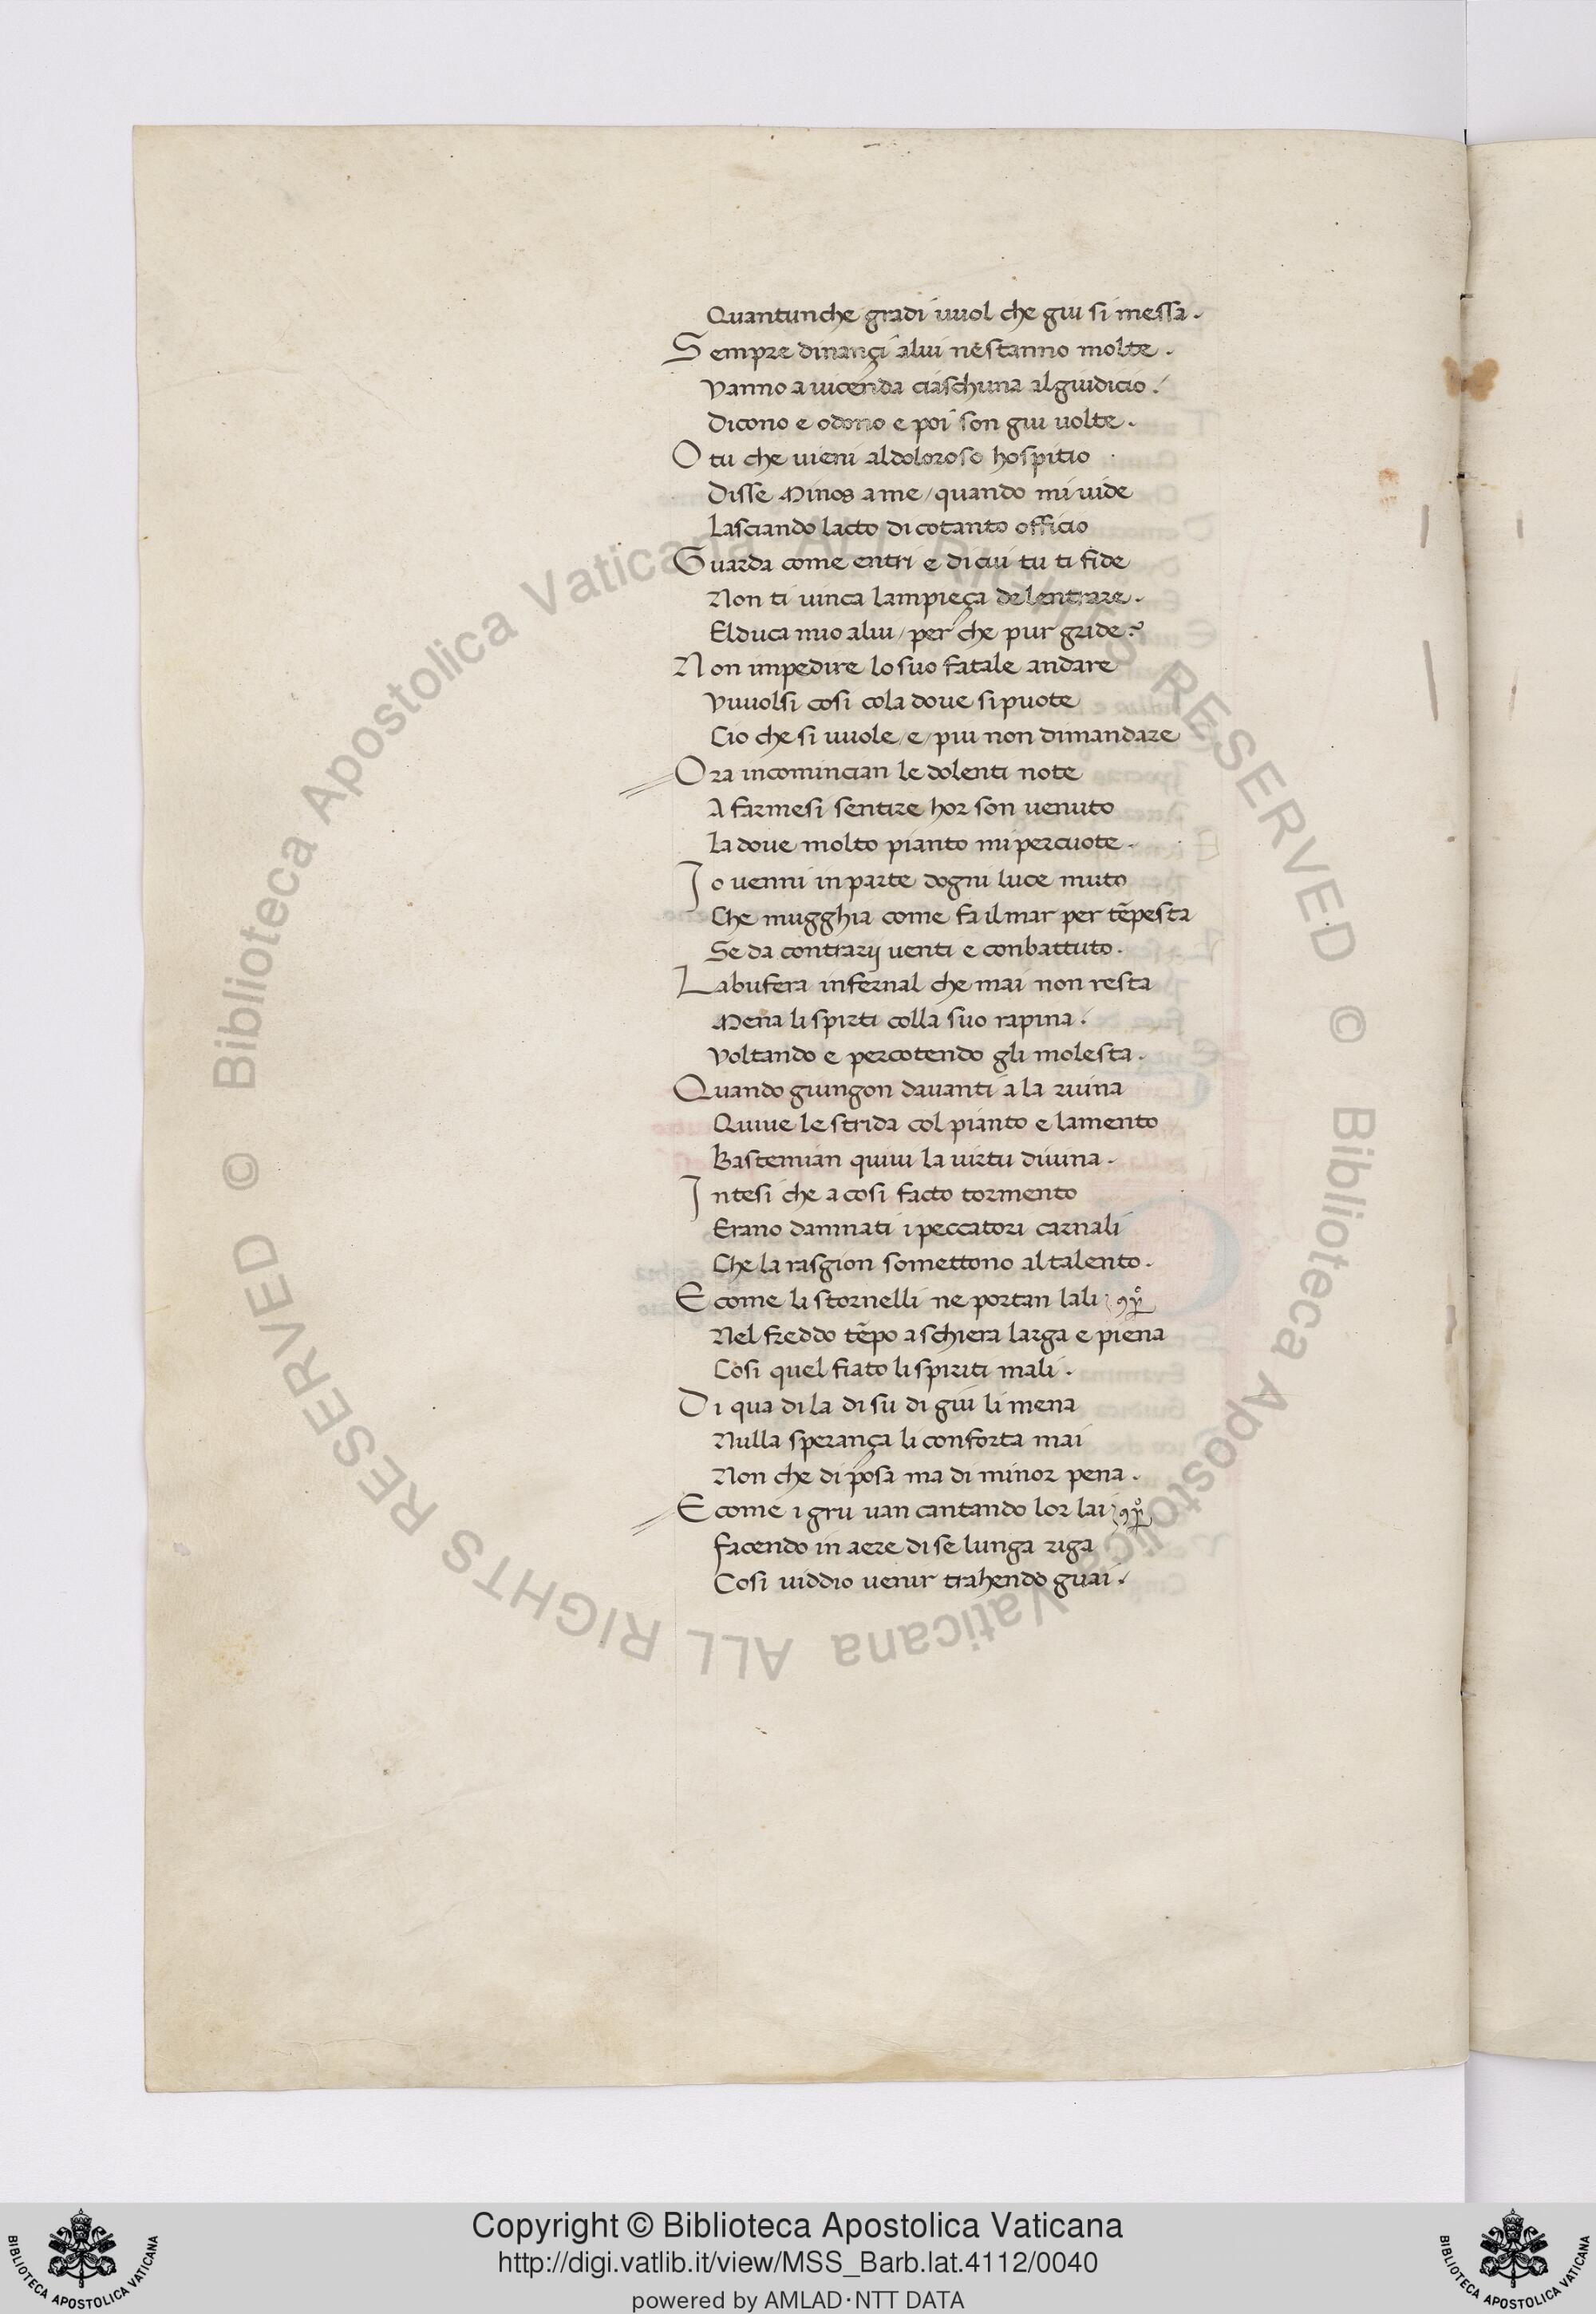 Quantunche gradi vuol che giu si messa.
Sempre dinançi alui ne stanno molte.
Vanno a uicenda ciaschuna algiudicio.
Dicono e odono e poi son giu uolte.
O tu che uieni aldoloroso hospitio
Disse Minos ame / quando mi uide
Lasciando lacto di cotanto officio
Guarda come entri e di cui tu ti fide
Non ti inca lampieça delentrare.
Elduca mio alui / per che pur gride?
Non impedire lo suo fatale andare
Vuuolsi cosi cola doue si puote
Cio che si uuole / e / piu non dimandare
Ora incomincian le dolenti note
A farmesi sentire hor son uenuto
La doue molto pianto mi percuote.
Io uenni in parte dogni luce muto
Che mugghia come fa il mar per tēpesta
Se da contrarij uenti e conbattuto.
La bufera infernal che mai non resta
Mena li spirti colla suo rapina.
Voltando e percotendo gli molesta.
Quando giungon dauanti a la ruina
Quiue le strida col pianto e lamento
Bastemian quiui la uirtu diuina.
Intesi che a cosi facto tormento
Erano dannati i peccatori carnali
Che la rasgion somettono al talento.
E come li stornelli ne portan lali
Nel freddo tēpo a schiera larga e piena
Cosi quel fiato li spiriti mali.
Di qua di la di su di giu li mena
Nulla sperança li conforta mai
Non che di posa ma di minor pena.
E come i gru uan cantando lor lai
Facendo in aere di se lunga riga
Cosi uiddio uenir trahendo guai.
© Biblioteca Apostolica Vaticana ALL RIGHTS RESERVED © Biblioteca Apostolica Vaticana ALL RIGHTS RESERVED
BIBLIOTECA APOSTOLICA VATICANA
Copyright © Biblioteca Apostolica Vaticana
http://digi.vatlib.it/view/MSS_Barb.lat.4112/0040
powered by AMLAD·NTT DATA
BIBLIOTECA APOSTOLICA VATICANA